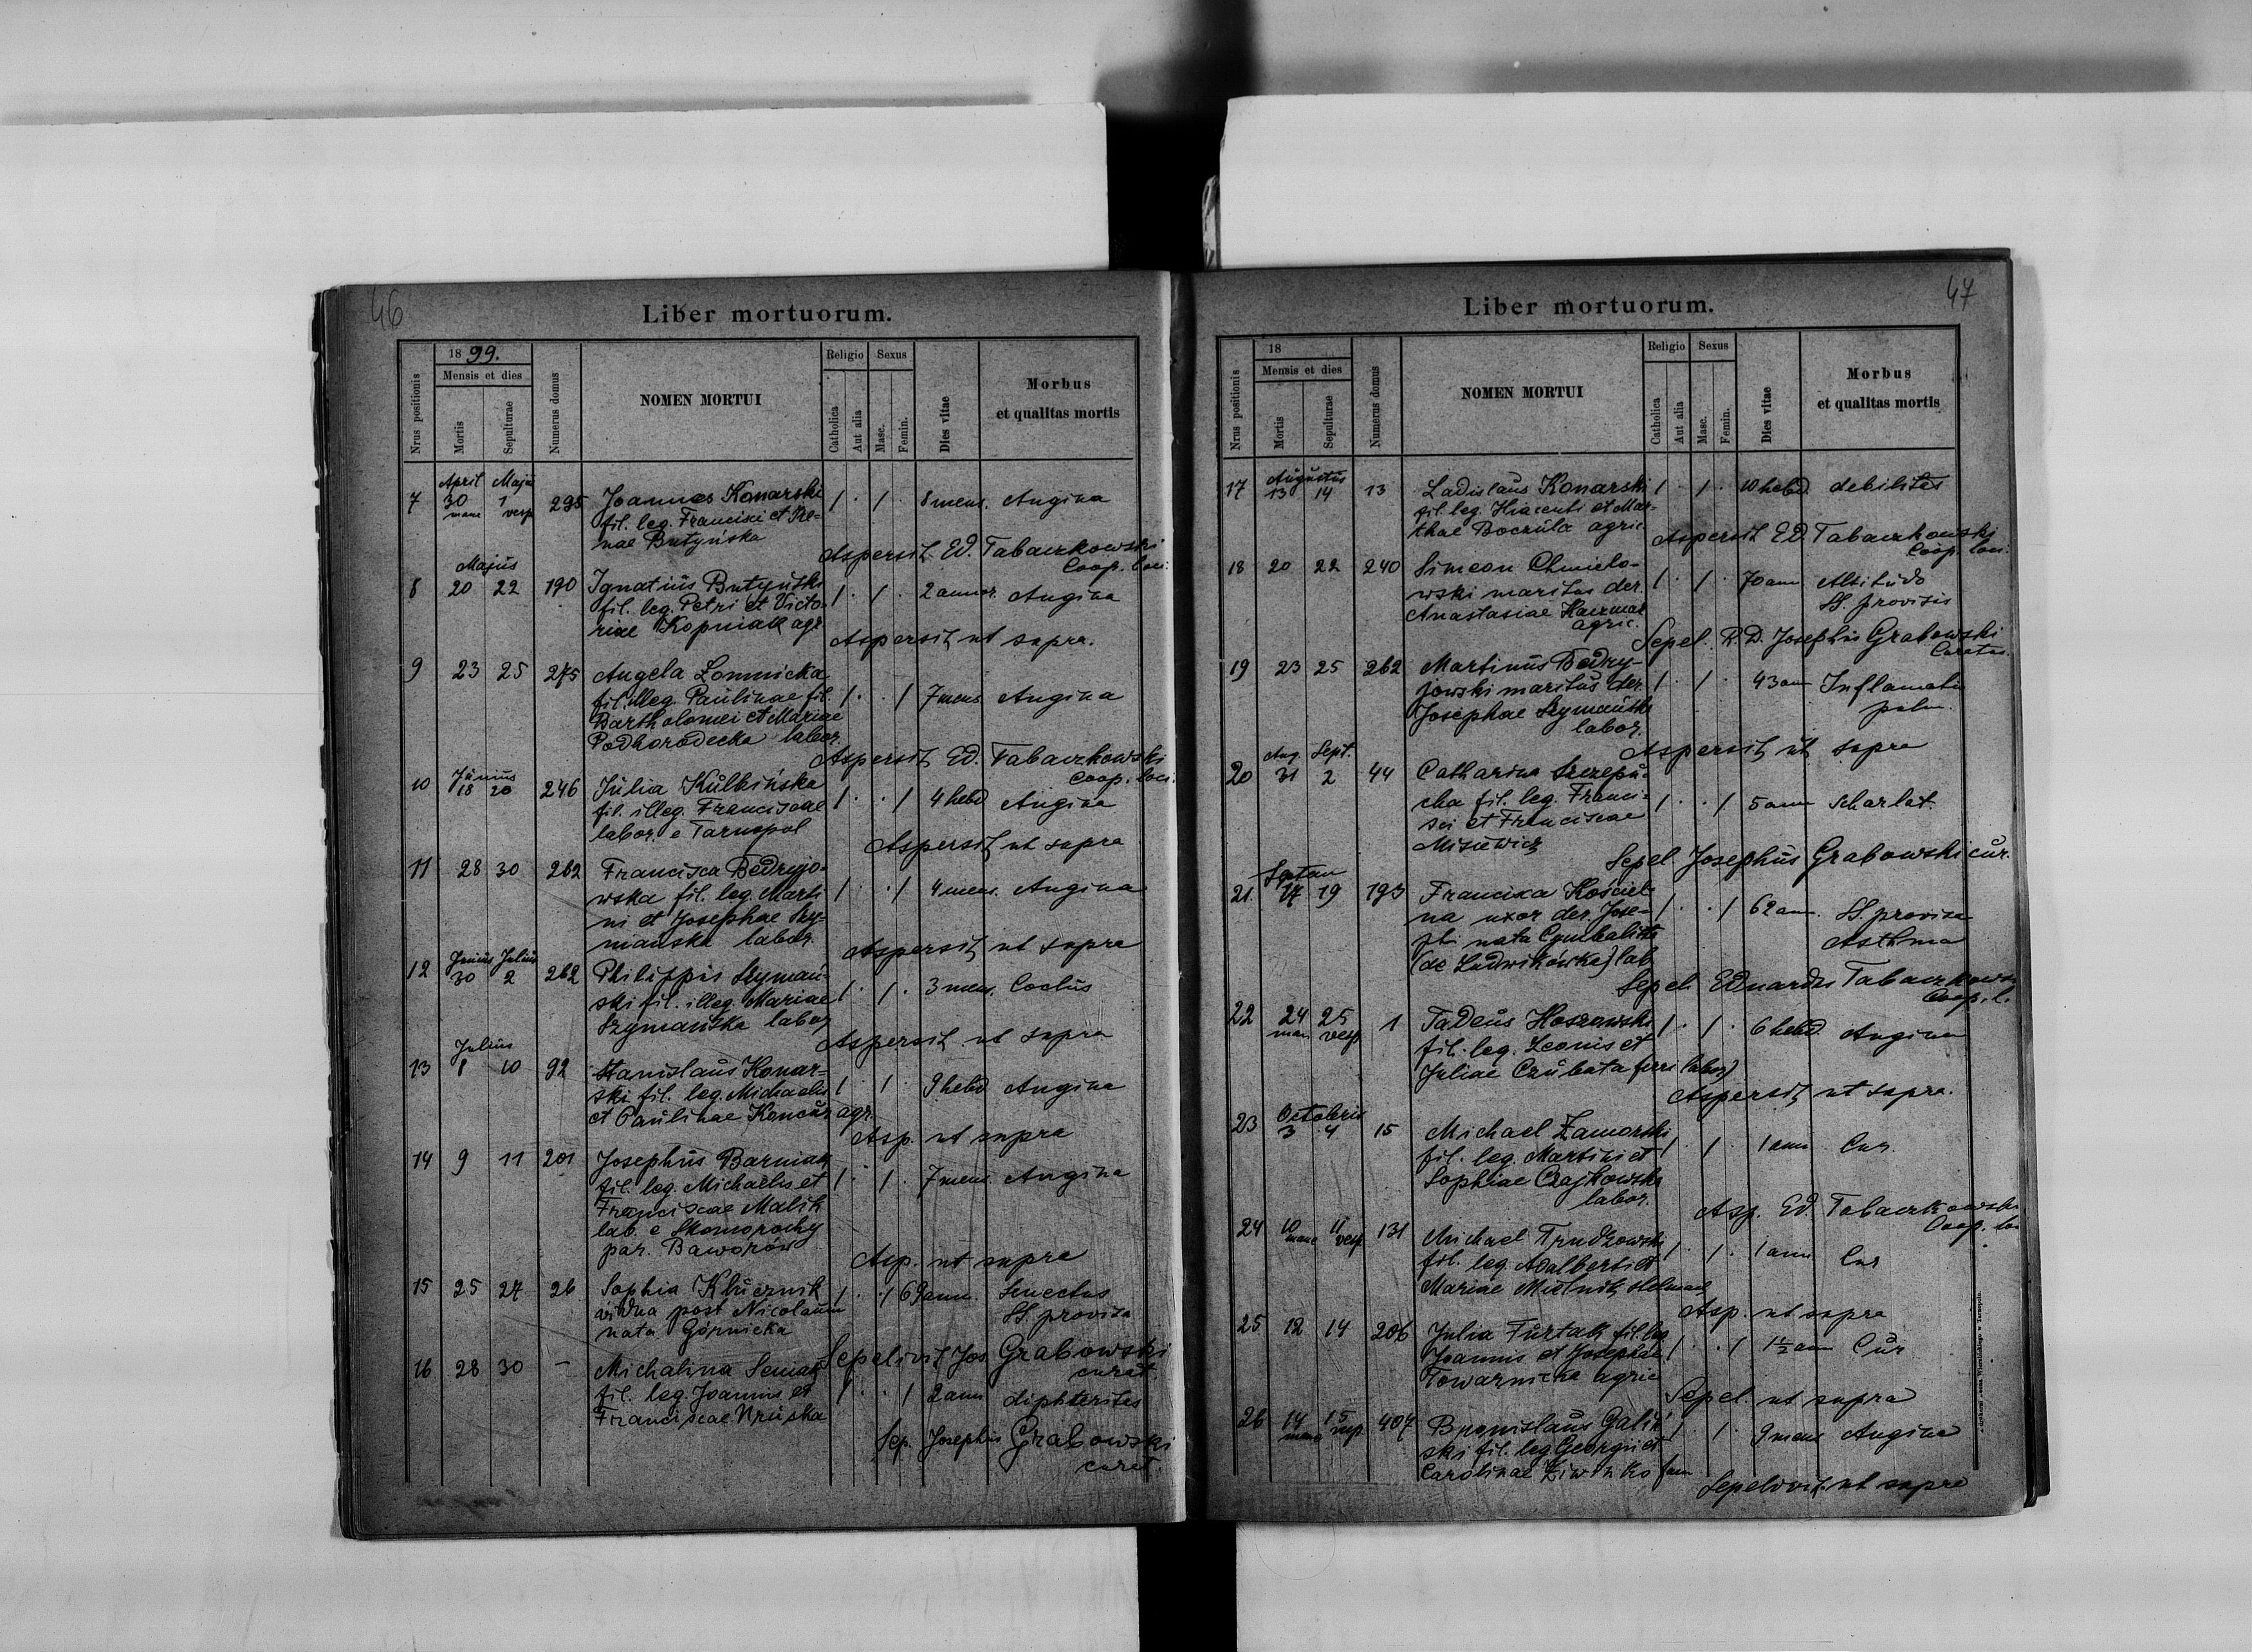 46
Liber mortuorum.
Nrus positionis
1899.
Mensis et dies
Mortis
Sepulturae
Numerus domus
NOMEN MORTUI
Religio
Catholica
Aut alia
Sexus
Masc.
Femin.
Dies vitae
Morbus
et qualitas mortis
April Majus
7 30 1 295 Joannes Konarski 1 . 1 . 8 mens. Angina
mane vesp fil. leg. Francisci et Ire-
nae Butyńska
Aspersit Ed. Tabaczkowski
Coop. loci.
Majus
8 20 22 190 Ignatius Butyński 1 . 1 . 2 annor. Angina
fil. leg. Petri et Victo-
riae Kopniak agr
Aspersit ut supra.
9 23 25 275 Angela Łomnicka
fil. illeg. Paulinae fil. 1 . . 1 7 mens Angina
Bartholomei et Mariae
Podhorodecka labor.
Aspersit Ed. Tabaczkowski
Coop. loci.
Junius
10 18 20 246 Julia Kulbińska
fil. illeg. Franciscae 1 . . 1 4 hebd Angina
labor. e Tarnopol
Aspersit ut supra
11 28 30 262 Francisca Bedryjo-
wska fil. leg. Marti- 1 . . 1 4 mens. Angina
ni et Josephae Szy-
mańska labor.
Aspersit ut supra
Junius Julius
12 30 2 262 Philippus Szymań-
ski fil. illeg. Mariae 1 . 1 . 3 mens. Coclus
Szymańska labor
Aspersit ut supra
Julius
13 8 10 92 Stanislaus Konar-
ski fil. leg. Michaelis 1 . 1 . 9 hebd Angina
et Paulinae Koncur agr.
Asp. ut supra
14 9 11 201 Josephus Barniak
fil. leg. Michaelis et 1 . 1 . 7 mens. Angina
Franciscae Malik
lab. e Skomorochy
par. Baworów
Asp. ut supra
15 25 27 26 Sophia Kłucznik 1 . . 1 69 ann. Senectus
vidua post Nicolaum SS. provisa
nata Górnicka
Sepelivit Jos. Grabowski
curat.
16 28 30 — Michalina Semak
fil. leg. Joannis et 1 . . 1 2 ann diphteritis
Franciscae Kruska
Sep. Josephus Grabowski
curat.
47
Liber mortuorum.
Nrus positionis
18
Mensis et dies
Mortis
Sepulturae
Numerus domus
NOMEN MORTUI
Religio
Catholica
Aut alia
Sexus
Masc.
Femin.
Dies vitae
Morbus
et qualitas mortis
Augustus
17 13 14 13 Ladislaus Konarski 1 . 1 . 10 hebd. debilitas
fil. leg. Hiacenti et Mar-
thae Boczula agric.
Aspersit Ed. Tabaczkowski
Coop. loci.
18 20 22 240 Simeon Chmielo-
wski maritus der. 1 . 1 . 70 ann Altitudo
Anastasiae Kaczmar SS. provisis
agric.
Sepel. R. D. Josephus Grabowski
Curatus.
19 23 25 262 Martinus Bedry-
jowski maritus der. 1 . 1 . 43 ann Inflamatio
Josephae Szymańska pulm.
labor.
Aspersit ut supra
Aug. Sept.
20 31 2 44 Catharina Szczepu-
cha fil. leg. Franci- 1 . . 1 5 ann Scharlat.
sci et Franciscae
Misiewicz
Sepel Josephus Grabowski cur.
Septem
21 17 19 193 Francisca Kościel-
na uxor der. Jose- 1 . . 1 62 ann. SS. provisa
phi nata Cymbalista Asthma
(de Ludwikówka) lab
Sepel. Eduardus Tabaczkowski
Coop. l.
22 24 25 1 Tadeus Hoszowski 1 . 1 . 6 hebd Angina
man vesp fil. leg. Leonis et
Juliae Czubata (ferri labor)
Aspersit ut supra.
Octobris
23 3 4 15 Michael Zamorski
fil. leg. Martini et 1 . 1 . 1 ann Cur.
Sophiae Czajkowska
labor.
Asp. Ed. Tabaczkowski
Coop. loci
24 10 11 131 Michael Trudzowski
mane vesp fil. leg. Adalberti et 1 . 1 . 1 ann Cur
Mariae Mielnik Helmach
Asp. ut supra
25 12 14 206 Julia Furtak fil. leg
Joannis et Josephae 1 . . 1 1½ ann Cur
Towarnicka agric
Sepel. ut supra
26 14 15 407 Bronislaus Galiń-
mane vesp ski fil. leg. Georgii et 1 . 1 . 9 mens Angina
Carolinae Ziwinko fam
Sepelivit ut supra